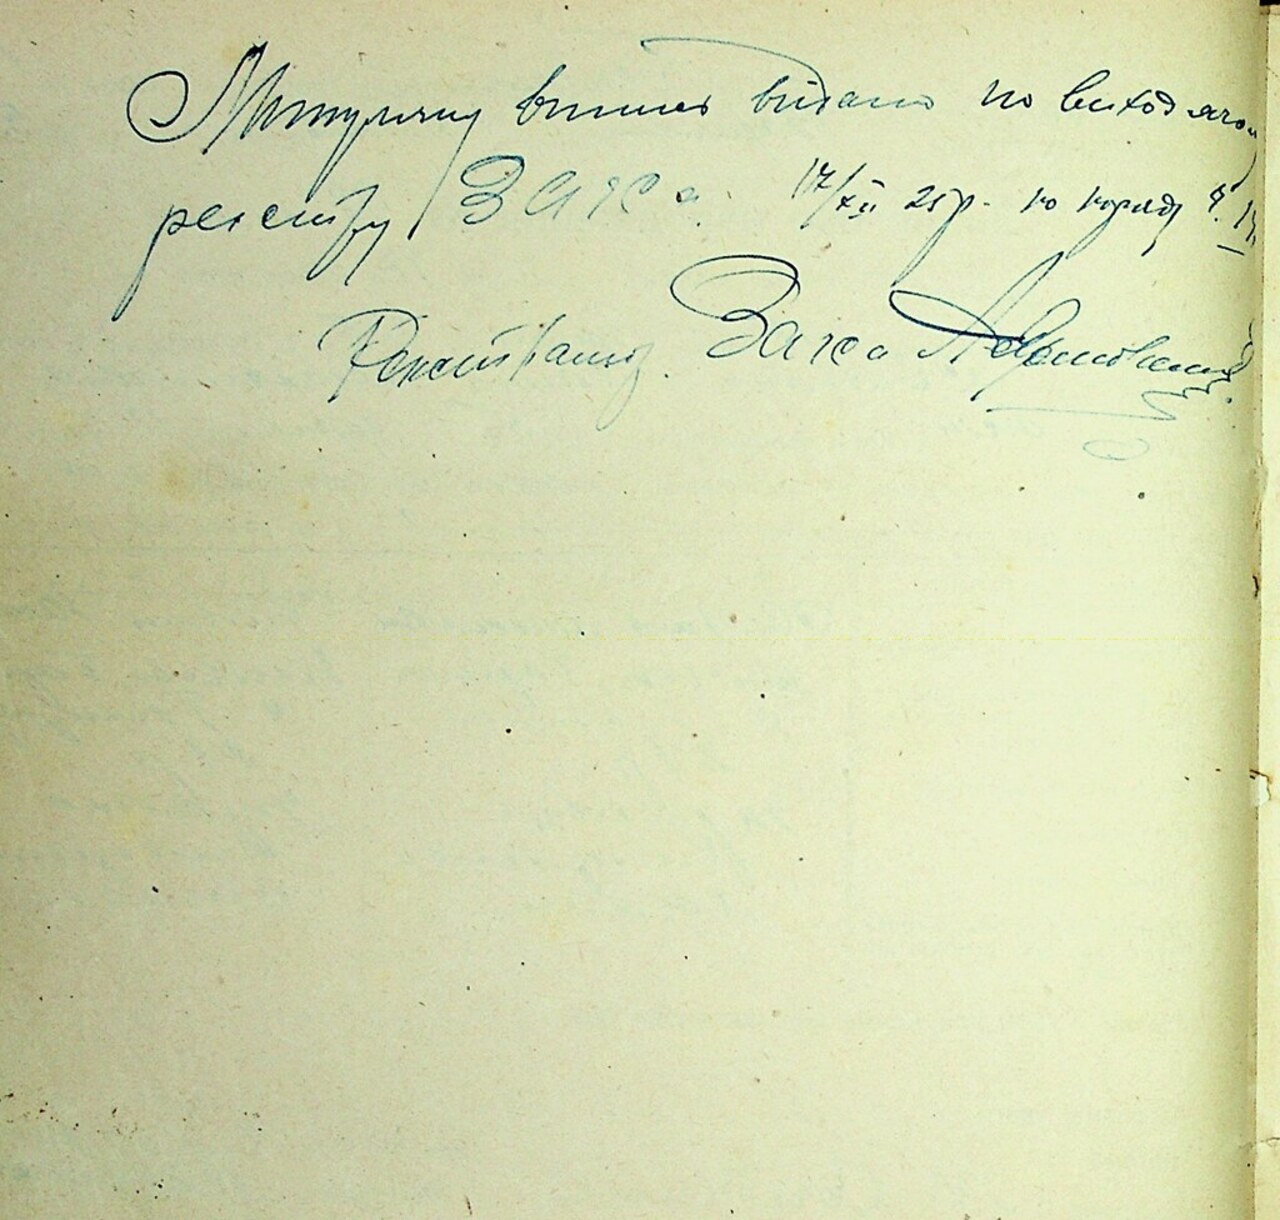 Метричну випись видано по виходячому
реєстру ЗАГСа 17/XII 25 р. по поряд
Реєстратор Загса